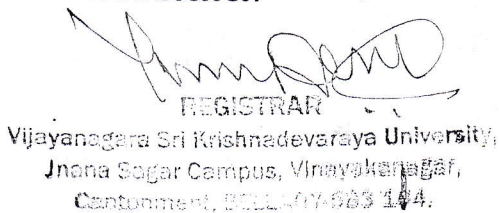 REGISTRAR
Vijayanagara Sri Krishnadevaraya University,
Jnana Sagar Campus, Vinayakanagar,
Cantonment,